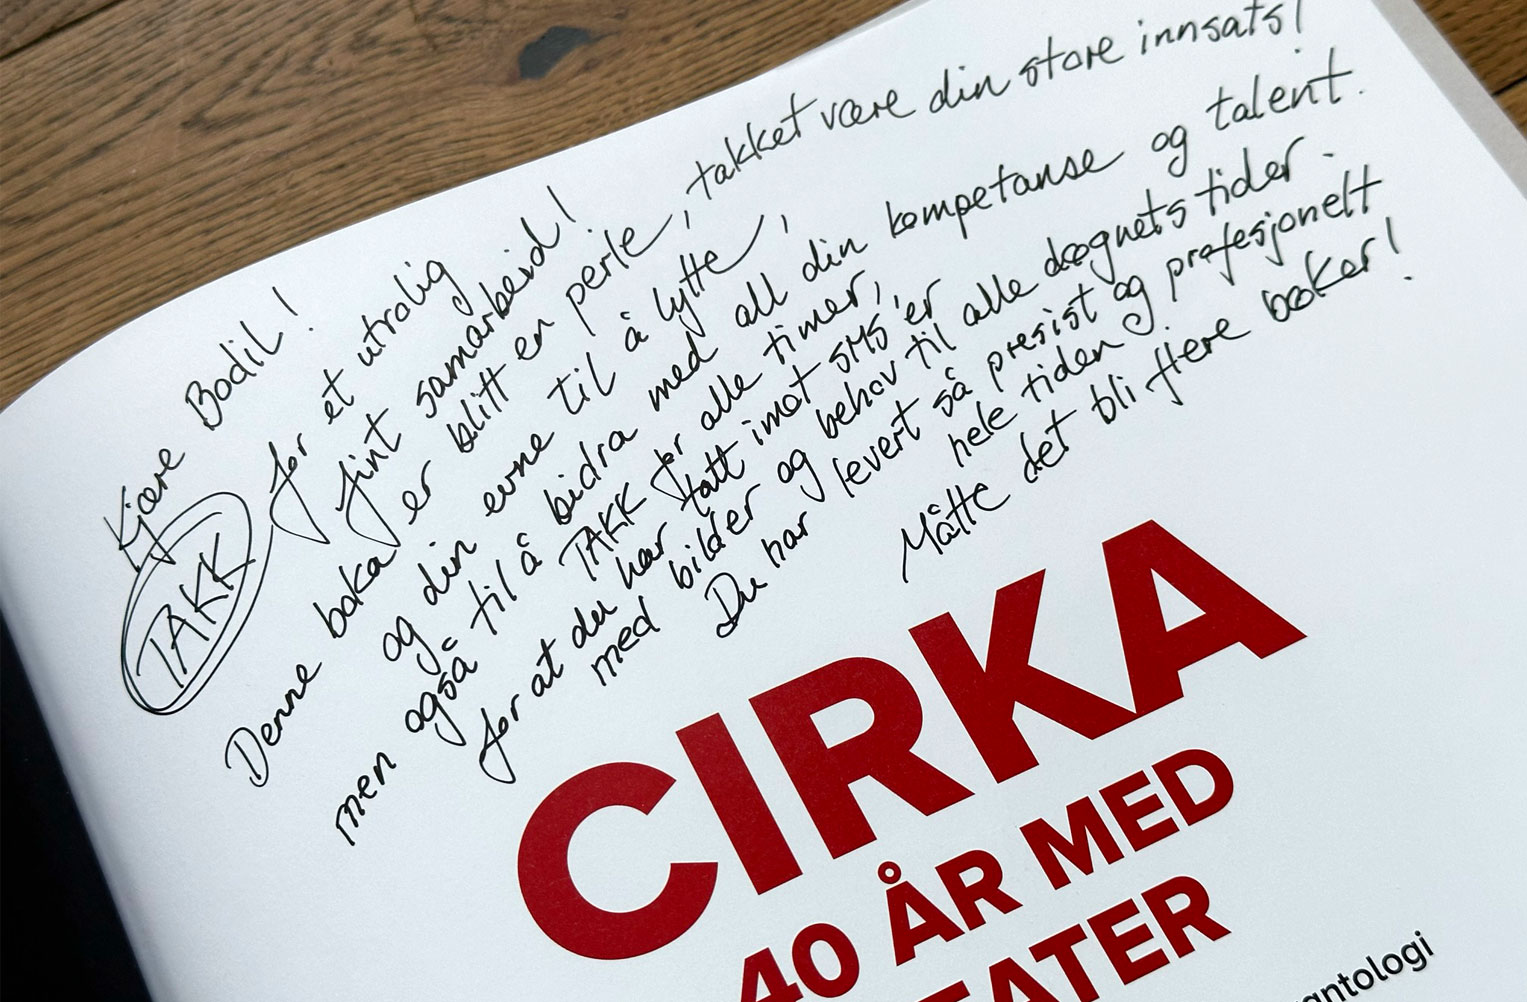 Kjære Bodil!
TAKK for et utrolig
fint samarbeid!
Denne boka er blitt en perle, takket være din store innsats!
og din evne til å lytte,
men også til å bidra med all din kompetanse og talent.
TAKK for alle timer,
for at du har tatt imot SMS'er
med bilder og behov til alle døgnets tider.
Du har levert så presist og profesjonelt
hele tiden.
Måtte det bli flere bøker!
CIRKA
40 ÅR MED